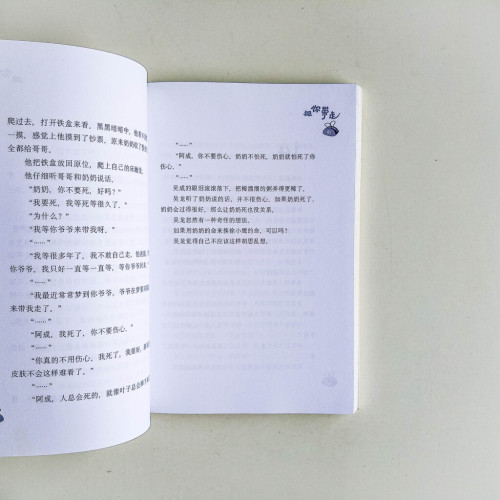 爬过去，打开铁盒来看，黑黑暗暗中，他
一摸，感觉上他摸到了钞票，原来奶奶
全都给哥哥。
他把铁盒放回原位，爬上自己的床
他仔细听哥哥和奶奶说话。
“奶奶，你不要死，好吗？”
“我要死，我等死等很久了。”
“为什么？”
“我等你爷爷来带我呀。”
“……”
“我等很多年了，我不敢自己走，他
你爷爷，我只好一直等一直等，等你爷爷
“我最近常常梦到你爷爷，爷爷在梦里
来带我走了。”
“……”
“阿成，我死了，你不要伤心。”
“……”
“你真的不用伤心，我死了，我
皮肤不会这样难看了。”
“……”
“阿成，人总会死的，就像叶子总会
你
走
“……”
“阿成，你不要伤心，奶奶不怕死，奶奶就怕死了你
伤心。”
吴成的眼泪滚滚落下，把稀溜溜的粥弄得更稀了。
吴龙听了奶奶说的话，并不很伤心，如果奶奶死了，
奶奶会过得很好，那么让奶奶死也没关系。
吴龙忽然有一种奇怪的想法，
如果用奶奶的命来换徐小嫂的命，可以吗？
吴龙觉得自己不应该这样胡思乱想。